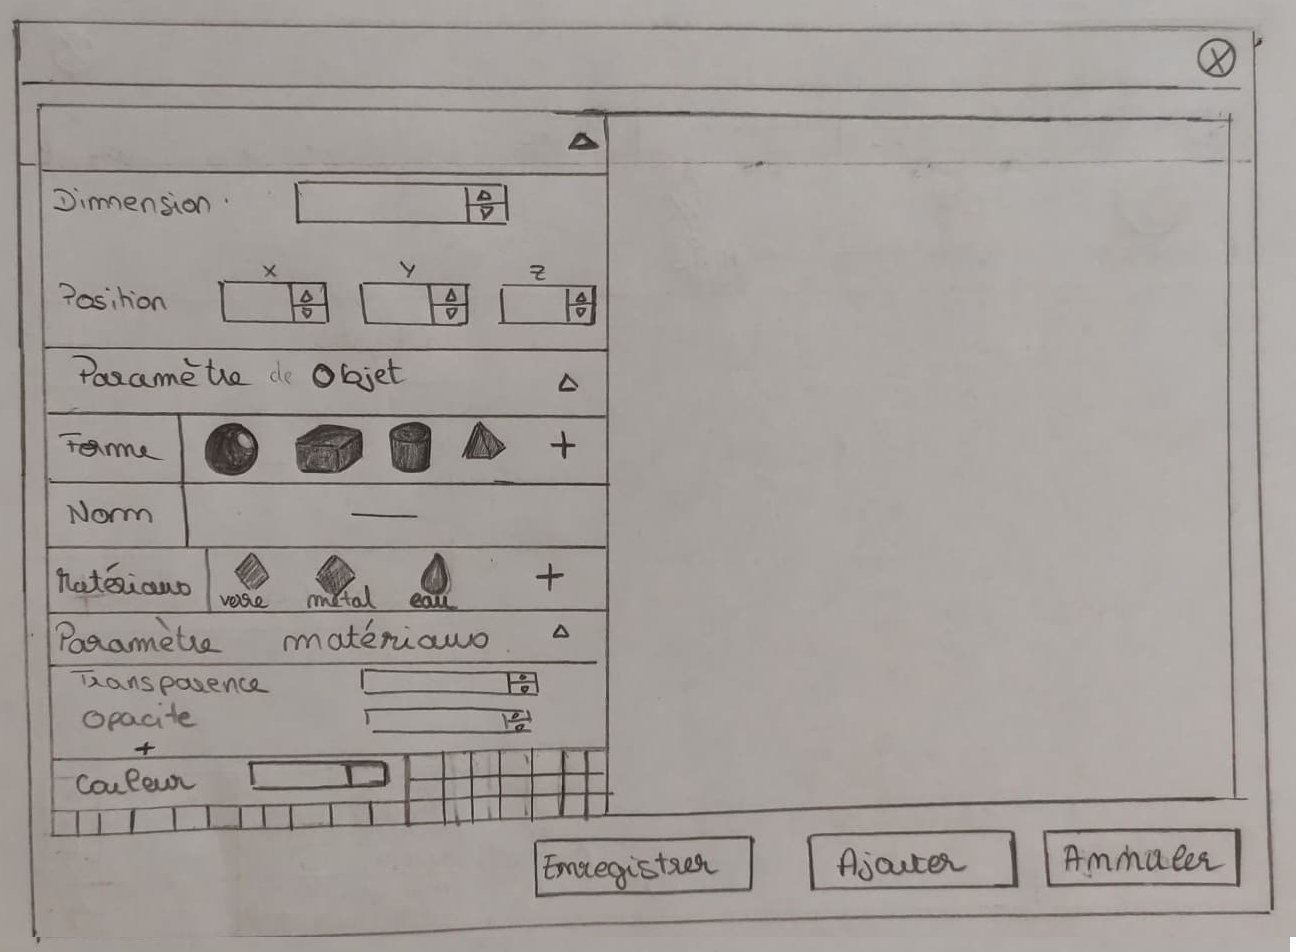 X
Dimension
X Y Z
Position
Paramètre de Objet
Forme +
Nom —
Matériaux verre métal eau +
Paramètre matériaux
Transparence
Opacite
+
Couleur
Enregistrer Ajouter Annuler